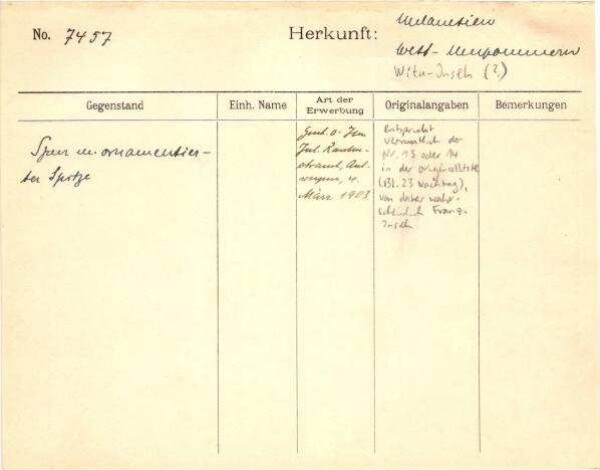 No. 7457
Herkunft:
Melanesien
West-Neupommern
Witu-Inseln (?)
Gegenstand
Einh. Name
Art der
Erwerbung
Originalangaben
Bemerkungen
Speer m. ornamentier-
ter Spitze
Jul. Konietzko
März 1903
Entspricht
vermutlich der
Nr. 13 oder 14
in der Originalliste
(Bl. 23 Nachtrag),
von daher wahr-
scheinlich Franz.
Inseln